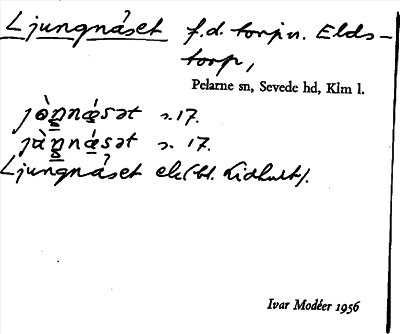 Ljungnäset f.d. torp u. Elds-
torp,
Pelarne sn, Sevede hd, Klm l.
jòn̲næ̀sət s. 17.
jàn̲næ̀sət s. 17.
Ljungnåset ek (bl. Lidhult).
Ivar Modéer 1956